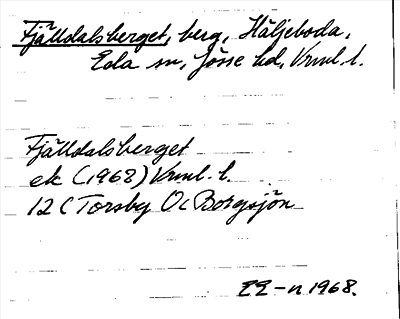 Fjälldalsberget, berg, Häljeboda,
Eda sn, Jösse hd, Vrml. l.
Fjälldalsberget
ek (1968) Vrml. l.
12 C Torsby Oc Borgsjön
EE-n 1968.